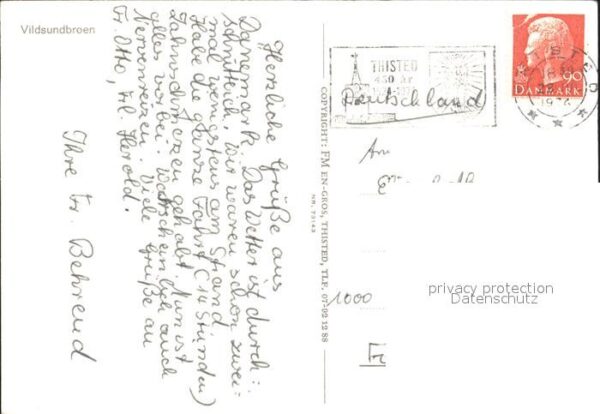 Vildsundbroen
Herzliche Grüße aus
Dänemark. Das Wetter ist durch=
schnittlich, wir waren schon zwei=
mal wenigstens am Strand.
Habe die ganze Fahrt (14 Stunden)
Zahnschmerzen gehabt. Nun ist
alles vorbei. Wahrscheinlich auch
Nervenreizen. Viele Grüße an
Fr. Otto, Frl. Herold.
Ihre Fr. Behrend
COPYRIGHT: FM EN-GROS, THISTED, TLF. 07-92 12 88
NR. 73143
THISTED
450 ÅR
Deutschland
90
DANMARK
An
1000
privacy protection
Datenschutz